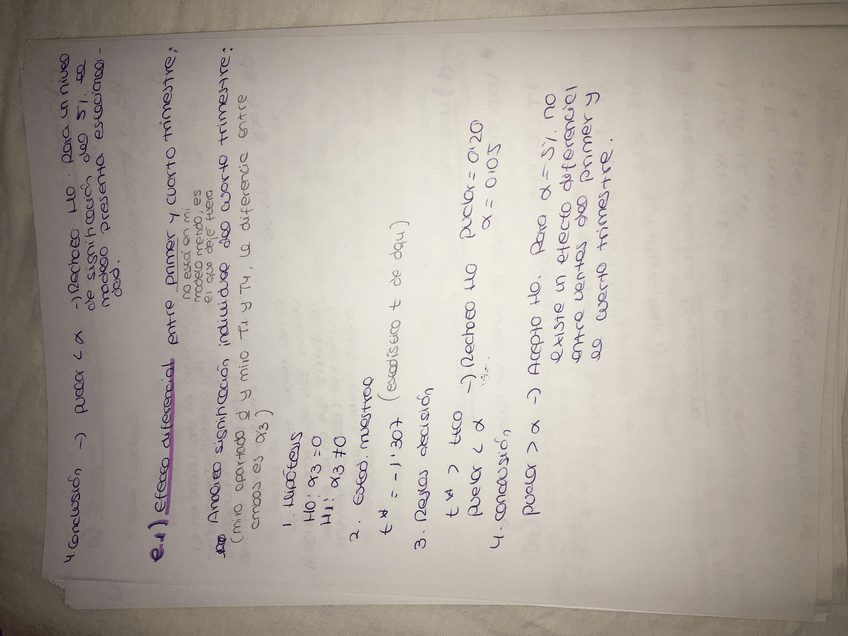 4. Conclusión → pvalor < α → Rechazo H0. Para un nivel
de significación del 5% el
modelo presenta estacionali-
dad.
e.1) Efecto diferencial entre primer y cuarto trimestre:
no está en mi
modelo mendo, es
el que dejé fuera
Analizo significación individual del cuarto trimestre:
(miro apartado d y miro T1 y T4, la diferencia entre
ambos es α3)
1. Hipótesis
H0: α3 = 0
H1: α3 ≠ 0
2. Estad. muestral
t* = -1'307 (estadístico t de d4t)
3. Reglas decisión
t* > tico
pvalor < α → Rechazo H0 pvalor = 0'20
α = 0'05
4. Conclusión
pvalor > α → Acepto H0. Para α = 5% no
existe un efecto diferencial
entre ventas del primer y
el cuarto trimestre.